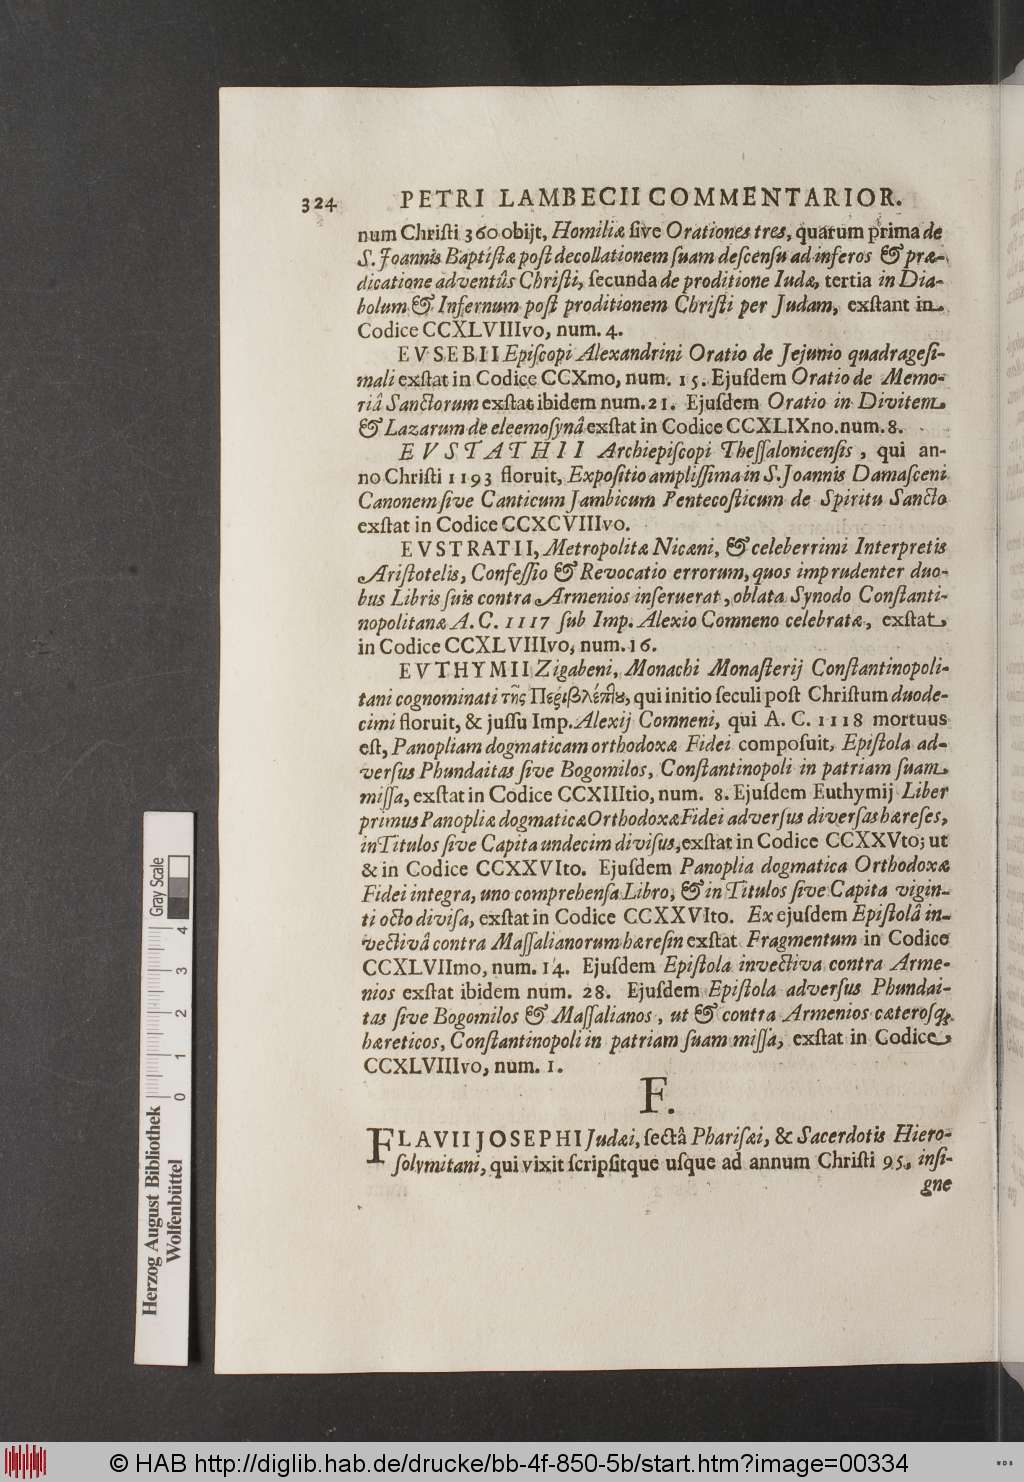 324 PETRI LAMBECII COMMENTARIOR.
num Chriſti 360 obijt, Homiliæ ſive Orationes tres, quarum prima de
S. Joannis Baptiſtæ poſt decollationem ſuam deſcenſu ad inferos & præ-
dicatione adventûs Chriſti, ſecunda de proditione Iudæ, tertia in Dia-
bolum & Infernum poſt proditionem Chriſti per Judam, exſtant in
Codice CCXLVIIIvo, num. 4.
EVSEBII Epiſcopi Alexandrini Oratio de Jejunio quadrageſi-
mali exſtat in Codice CCXmo, num. 15. Ejuſdem Oratio de Memo-
riâ Sanctorum exſtat ibidem num. 21. Ejuſdem Oratio in Divitem
& Lazarum de eleemoſynâ exſtat in Codice CCXLIXno. num. 8.
EVSTATHII Archiepiſcopi Theſſalonicenſis, qui an-
no Chriſti 1193 floruit, Expoſitio ampliſſima in S. Joannis Damaſceni
Canonem ſive Canticum Jambicum Pentecoſticum de Spiritu Sancto
exſtat in Codice CCXCVIIIvo.
EVSTRATII, Metropolitæ Nicæni, & celeberrimi Interpretis
Ariſtotelis, Confeſſio & Revocatio errorum, quos imprudenter duo-
bus Libris ſuis contra Armenios inſeruerat, oblata Synodo Conſtanti-
nopolitanæ A. C. 1117 ſub Imp. Alexio Comneno celebratæ, exſtat
in Codice CCXLVIIIvo, num. 16.
EVTHYMII Zigabeni, Monachi Monaſterij Conſtantinopoli-
tani cognominati τῆς Περιβλέπτȣ, qui initio ſeculi poſt Chriſtum duode-
cimi floruit, & juſſu Imp. Alexij Comneni, qui A. C. 1118 mortuus
eſt, Panopliam dogmaticam orthodoxæ Fidei compoſuit, Epiſtola ad-
verſus Phundaitas ſive Bogomilos, Conſtantinopoli in patriam ſuam
miſſa, exſtat in Codice CCXIIItio, num. 8. Ejuſdem Euthymij Liber
primus Panopliæ dogmaticæ Orthodoxæ Fidei adverſus diverſas hæreſes,
in Titulos ſive Capita undecim diviſus, exſtat in Codice CCXXVto; ut
& in Codice CCXXVIto. Ejuſdem Panoplia dogmatica Orthodoxæ
Fidei integra, uno comprehenſa Libro, & in Titulos ſive Capita vigin-
ti octo diviſa, exſtat in Codice CCXXVIto. Ex ejuſdem Epiſtolâ in-
vectivâ contra Maſſalianorum hæreſin exſtat Fragmentum in Codice
CCXLVIImo, num. 14. Ejuſdem Epiſtola invectiva contra Arme-
nios exſtat ibidem num. 28. Ejuſdem Epiſtola adverſus Phundai-
tas ſive Bogomilos & Maſſalianos, ut & contra Armenios cæteroſq;
hæreticos, Conſtantinopoli in patriam ſuam miſſa, exſtat in Codice
CCXLVIIIvo, num. 1.
F.
FLAVII JOSEPHI Judæi, ſectâ Phariſæi, & Sacerdotis Hiero-
ſolymitani, qui vixit ſcripſitque uſque ad annum Chriſti 95, inſi-
gne
Herzog August Bibliothek
Wolfenbüttel
0 1 2 3 4
Gray Scale
© HAB http://diglib.hab.de/drucke/bb-4f-850-5b/start.htm?image=00334